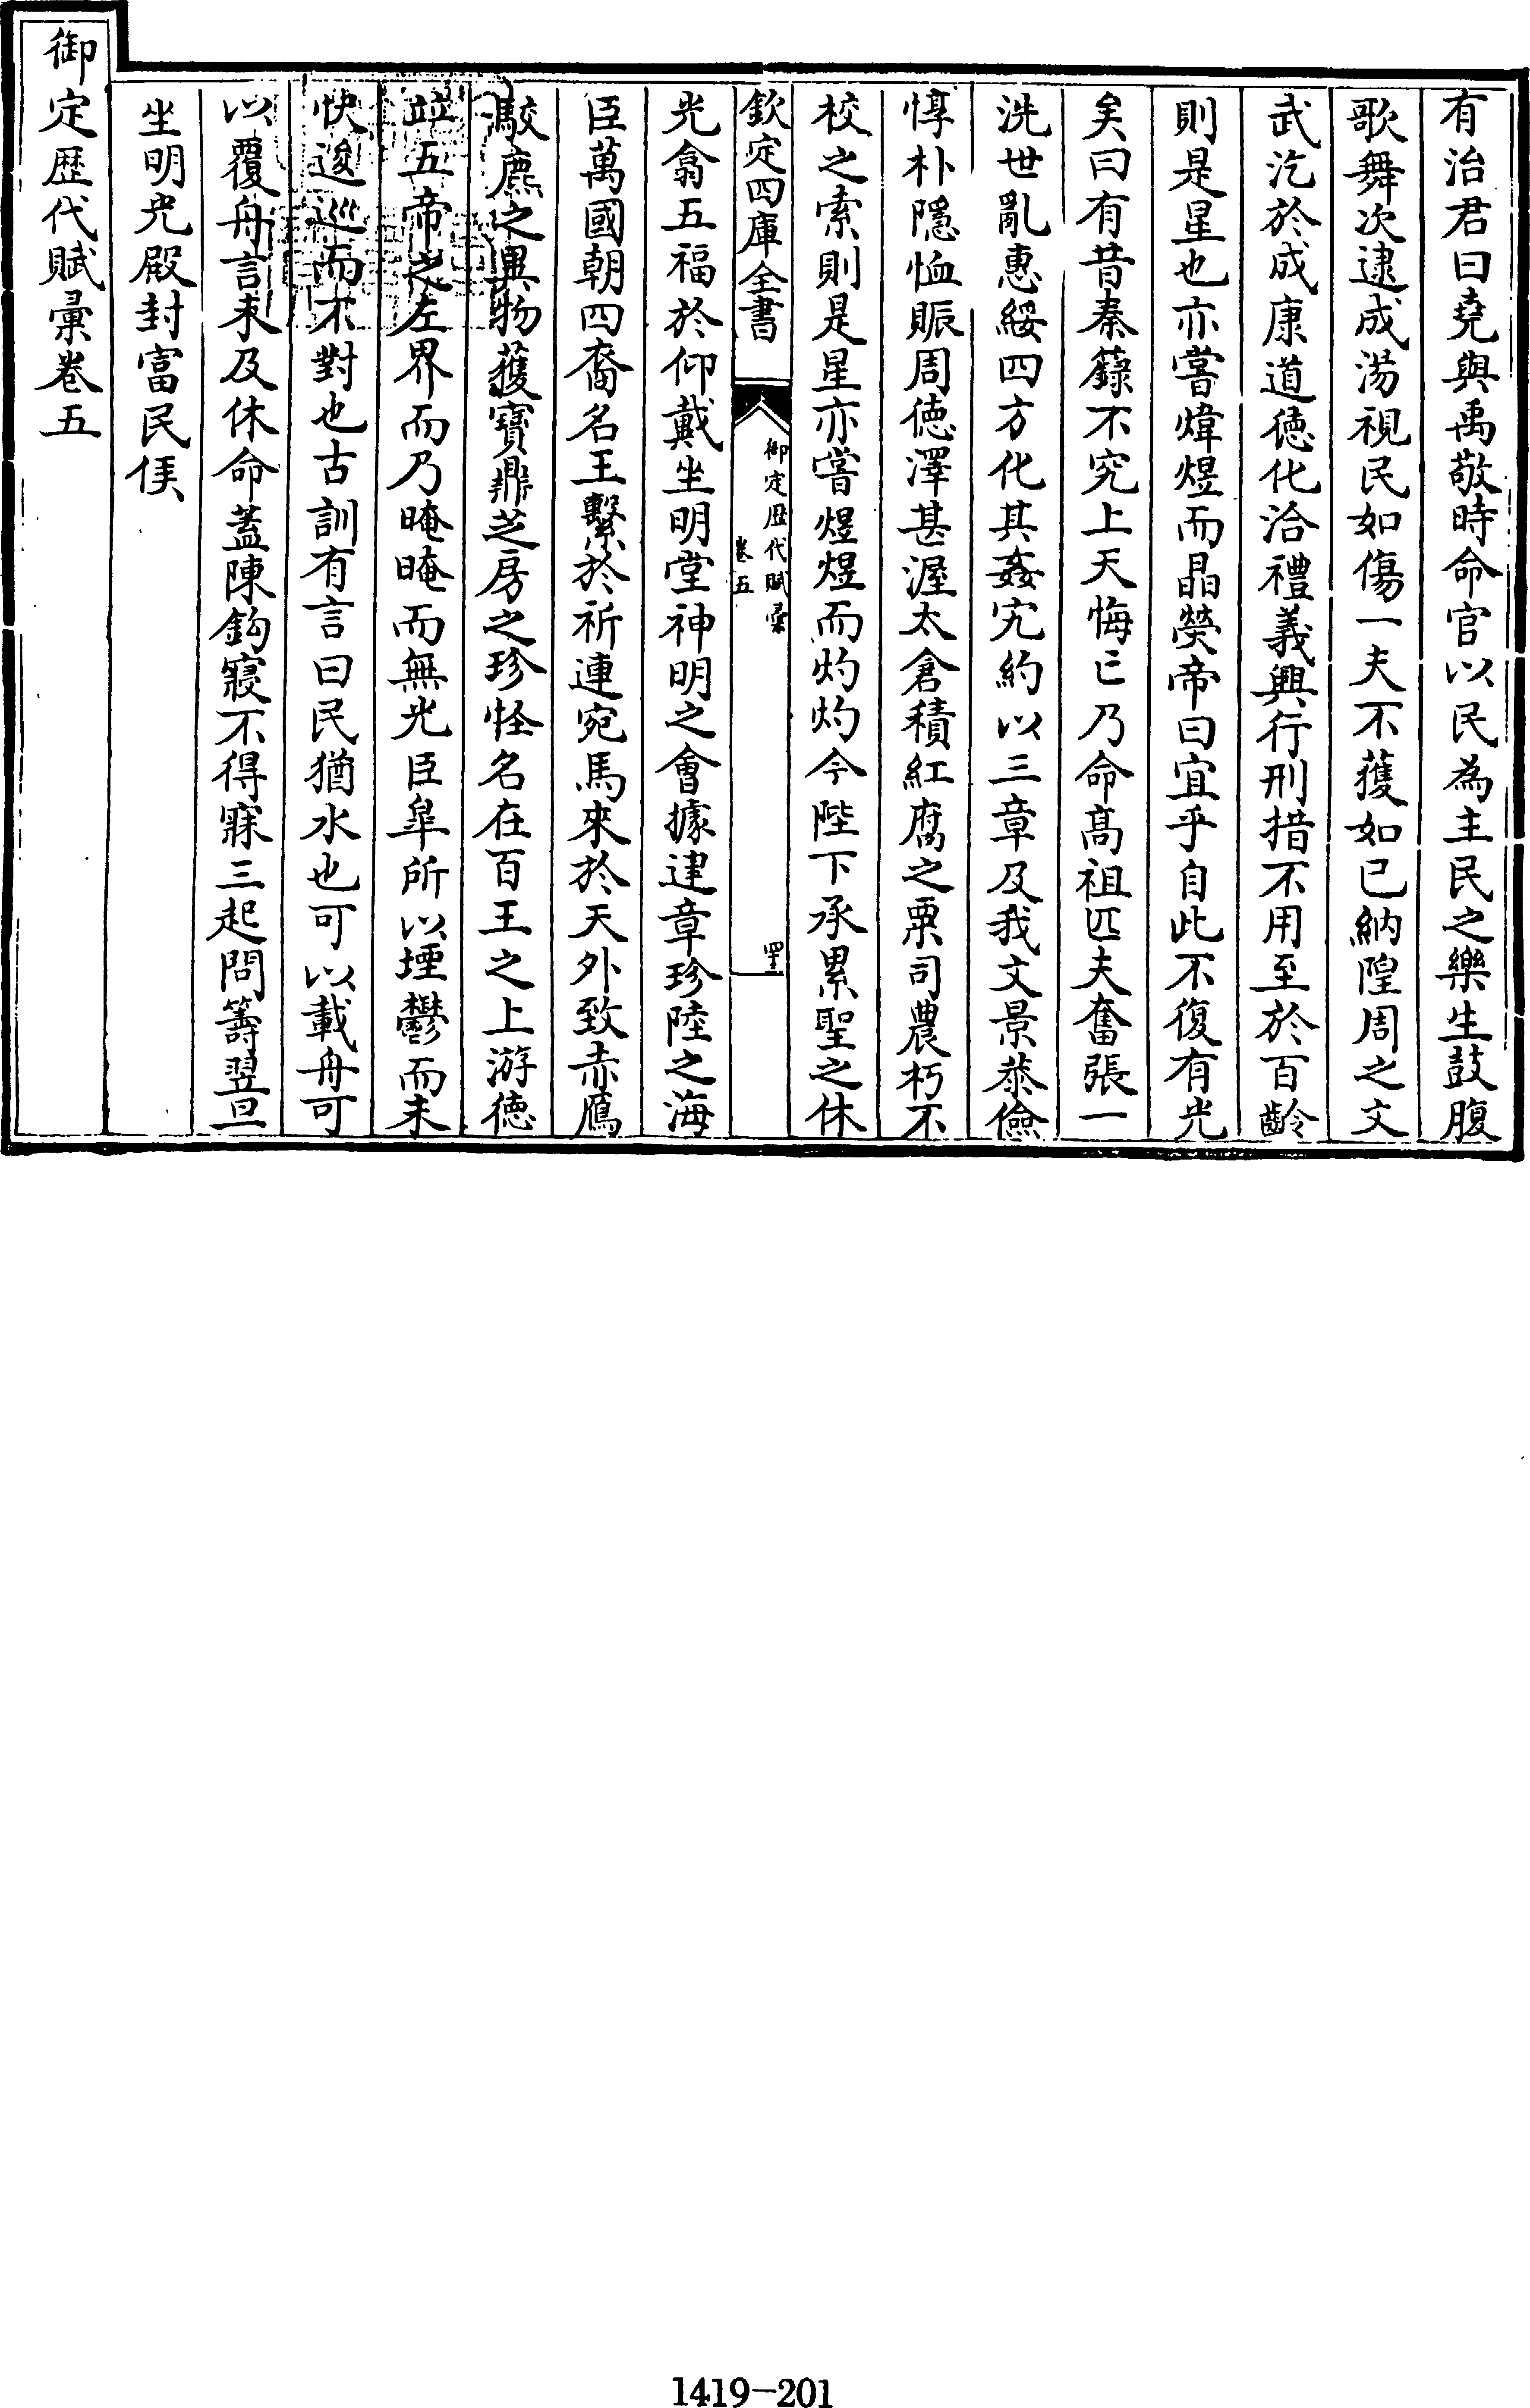 有治君曰堯與禹敬時命官以民為主民之樂生鼓腹
歌舞次逮成湯視民如傷一夫不獲如已納隍周之文
武汔於成康道徳化洽禮義興行刑措不用至於百齡
則是星也亦嘗煒煜而晶熒帝曰宜乎自此不復有光
矣曰有昔秦籙不究上天悔亡乃命髙祖匹夫奮張一
洗世亂惠綏四方化其姦宄約以三章及我文景恭儉
惇朴隱恤賑周徳澤甚渥太倉積紅腐之粟司農朽不
校之索則是星亦嘗煜煜而灼灼今陛下承累聖之休
欽定四庫全書
御定歴代賦彙
卷五
光翕五福於仰戴坐明堂神明之會據建章珍陸之海
臣萬國朝四裔名王繫於祈連宛馬來於天外致赤鴈
駮麃之異物獲寶鼎芝房之珍怪名在百王之上游徳
竝五帝之左界而乃晻晻而無光臣皐所以堙鬱而未
快逡巡而不對也古訓有言曰民猶水也可以載舟可
以覆舟言未及休命蓋陳鈎寢不得寐三起問籌翌旦
坐明光殿封富民侯
御定歴代賦彙卷五
1419-201